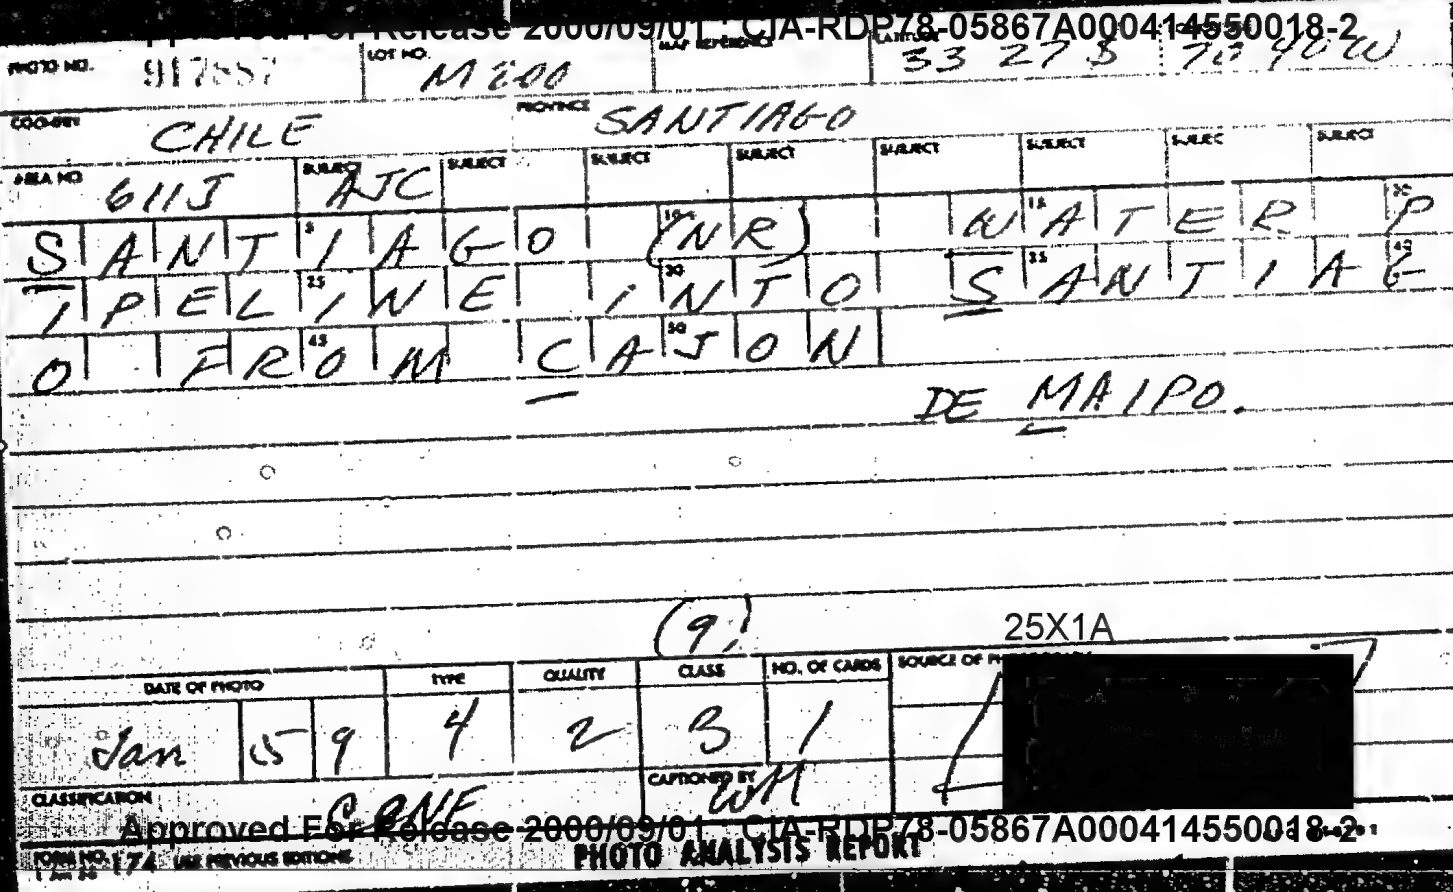 Approved For Release 2000/09/01 : CIA-RDP78-05867A000414550018-2
PHOTO NO. 917857 LOT NO. M 200 MAP REFERENCE LATITUDE 33 27 S 70 40 W
COUNTRY CHILE PROVINCE SANTIAGO
AREA NO 611J SUBJECT AJC SUBJECT SUBJECT SUBJECT SUBJECT SUBJECT SUBJECT SUBJECT
SANTIAGO (NR) WATER P
IPELINE INTO SANTIAG
O FROM CAJON
DE MAIPO.
(9)
25X1A
DATE OF PHOTO TYPE QUALITY CLASS NO. OF CARDS SOURCE OF
Jan 59 4 2 3 1
CLASSIFICATION CONF CAPTIONED BY WM
Approved For Release 2000/09/01 : CIA-RDP78-05867A000414550018-2
FORM NO. 174 USE PREVIOUS EDITIONS PHOTO ANALYSIS REPORT